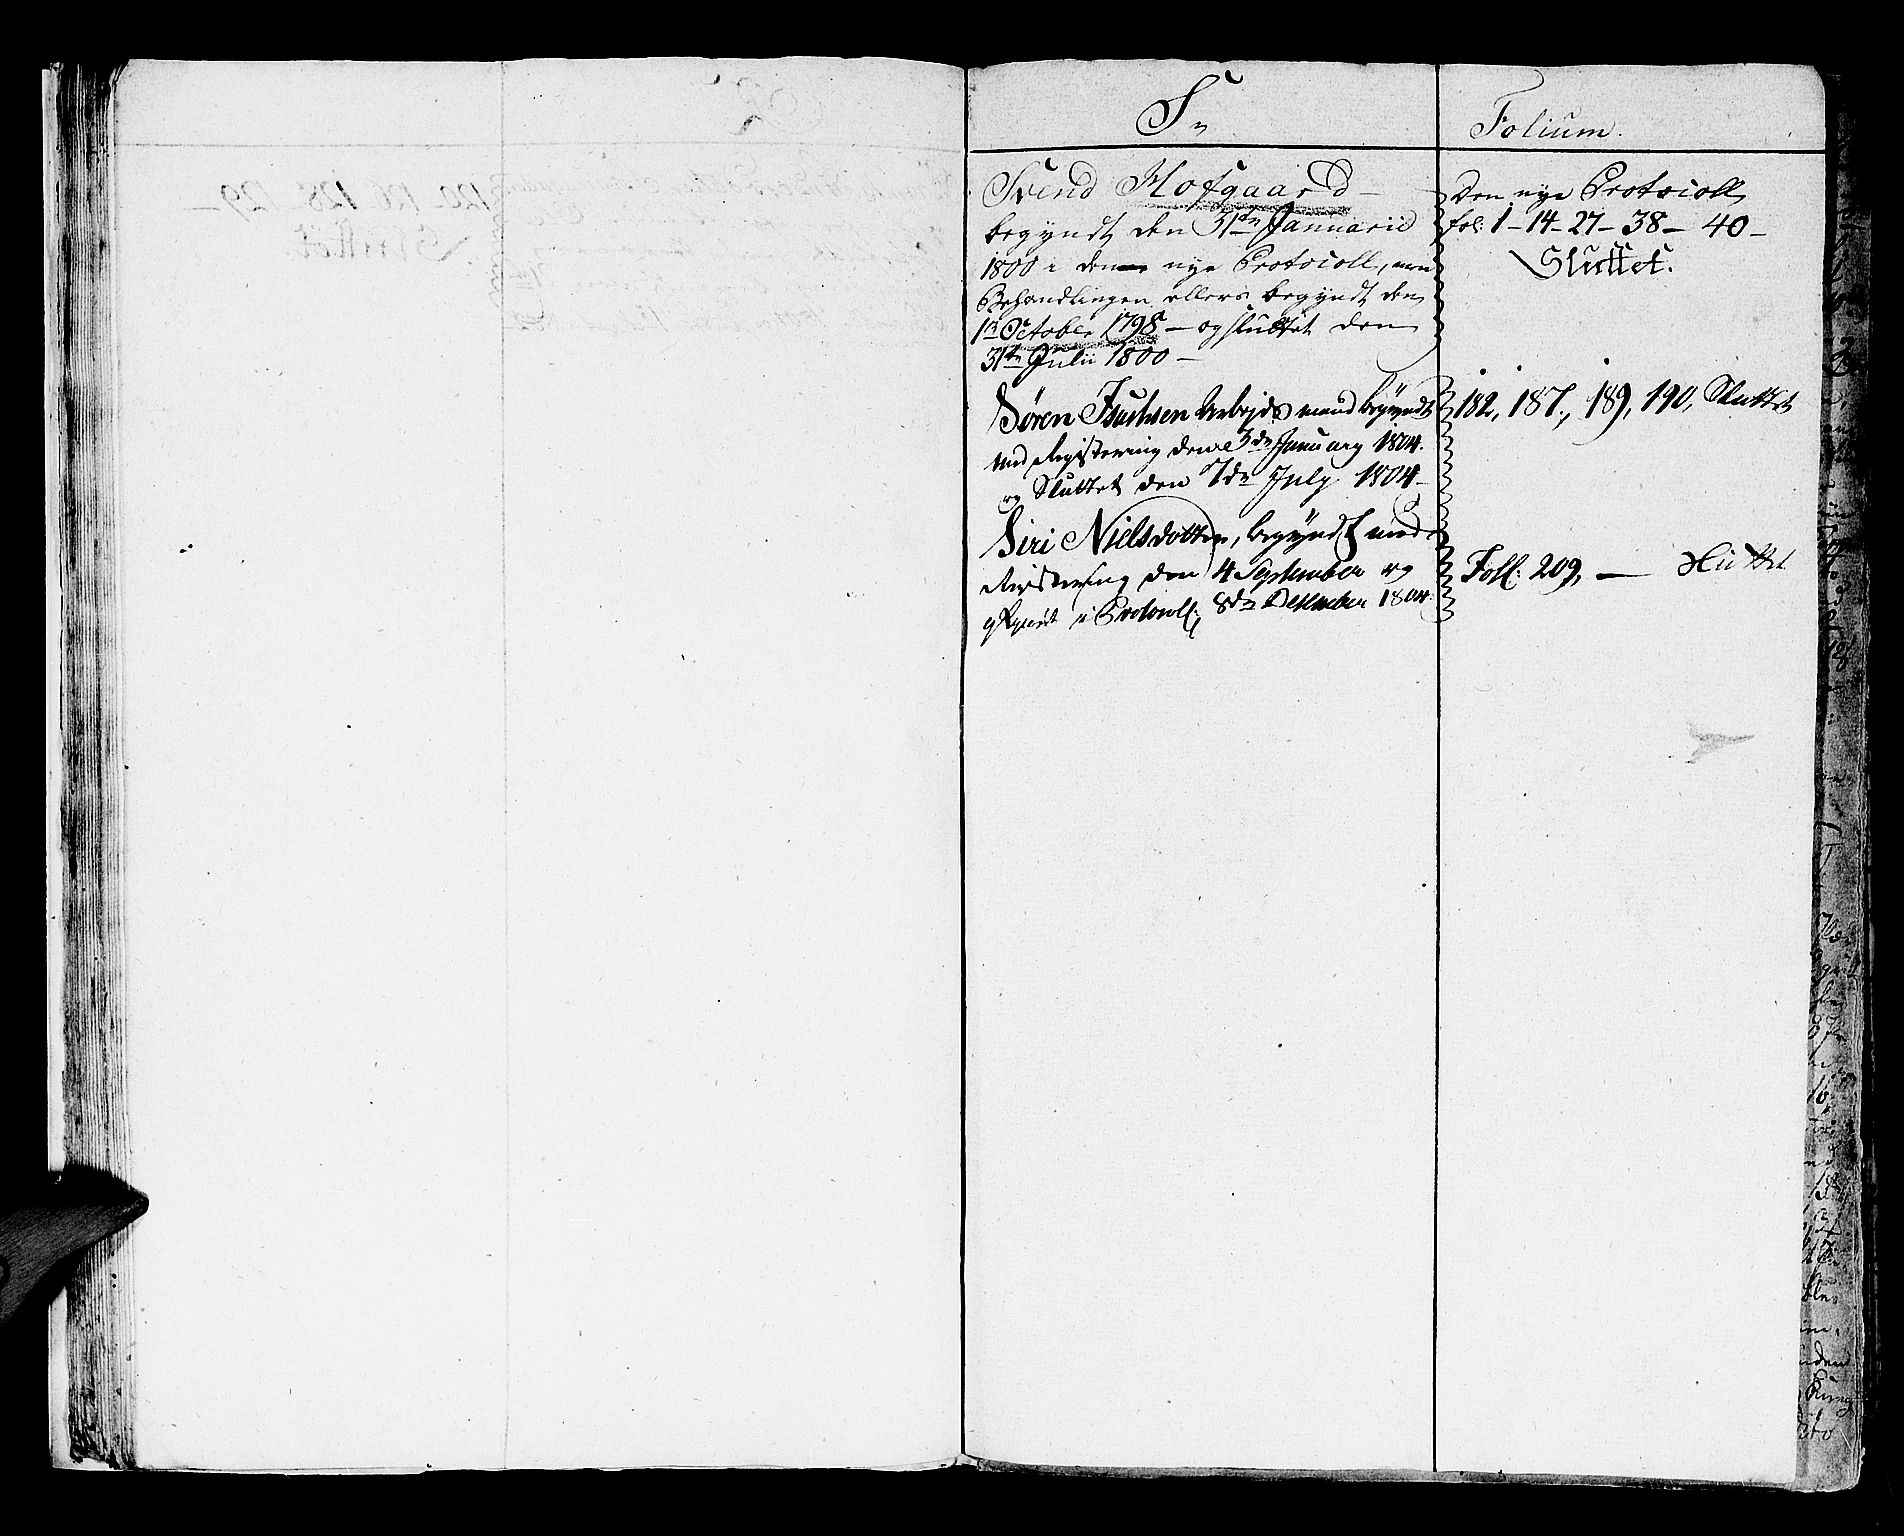 S
Folium.
Svend Hofgaard
begyndt den 31te Januarii
1800 i den nye Protocoll, men
Behandlingen ellers begyndt den
1te October 1798 — og sluttet den
31te Julii 1800 —
Den nye Protocoll
fol: 1 — 14 — 27 — 38 — 40 —
Sluttet.
Søren Isachsen Arbejdsmand begyndt
med Registering den 3de January 1804.
og Sluttet den 7de July 1804 —
182, 187, 189, 190, Sluttet
Siri Nielsdotter, begyndt med
Registering den 4 September og
i Protocoll, 8de December 1804.
Foll: 209, — Sluttet
120 126 128 129 —
Sluttet.